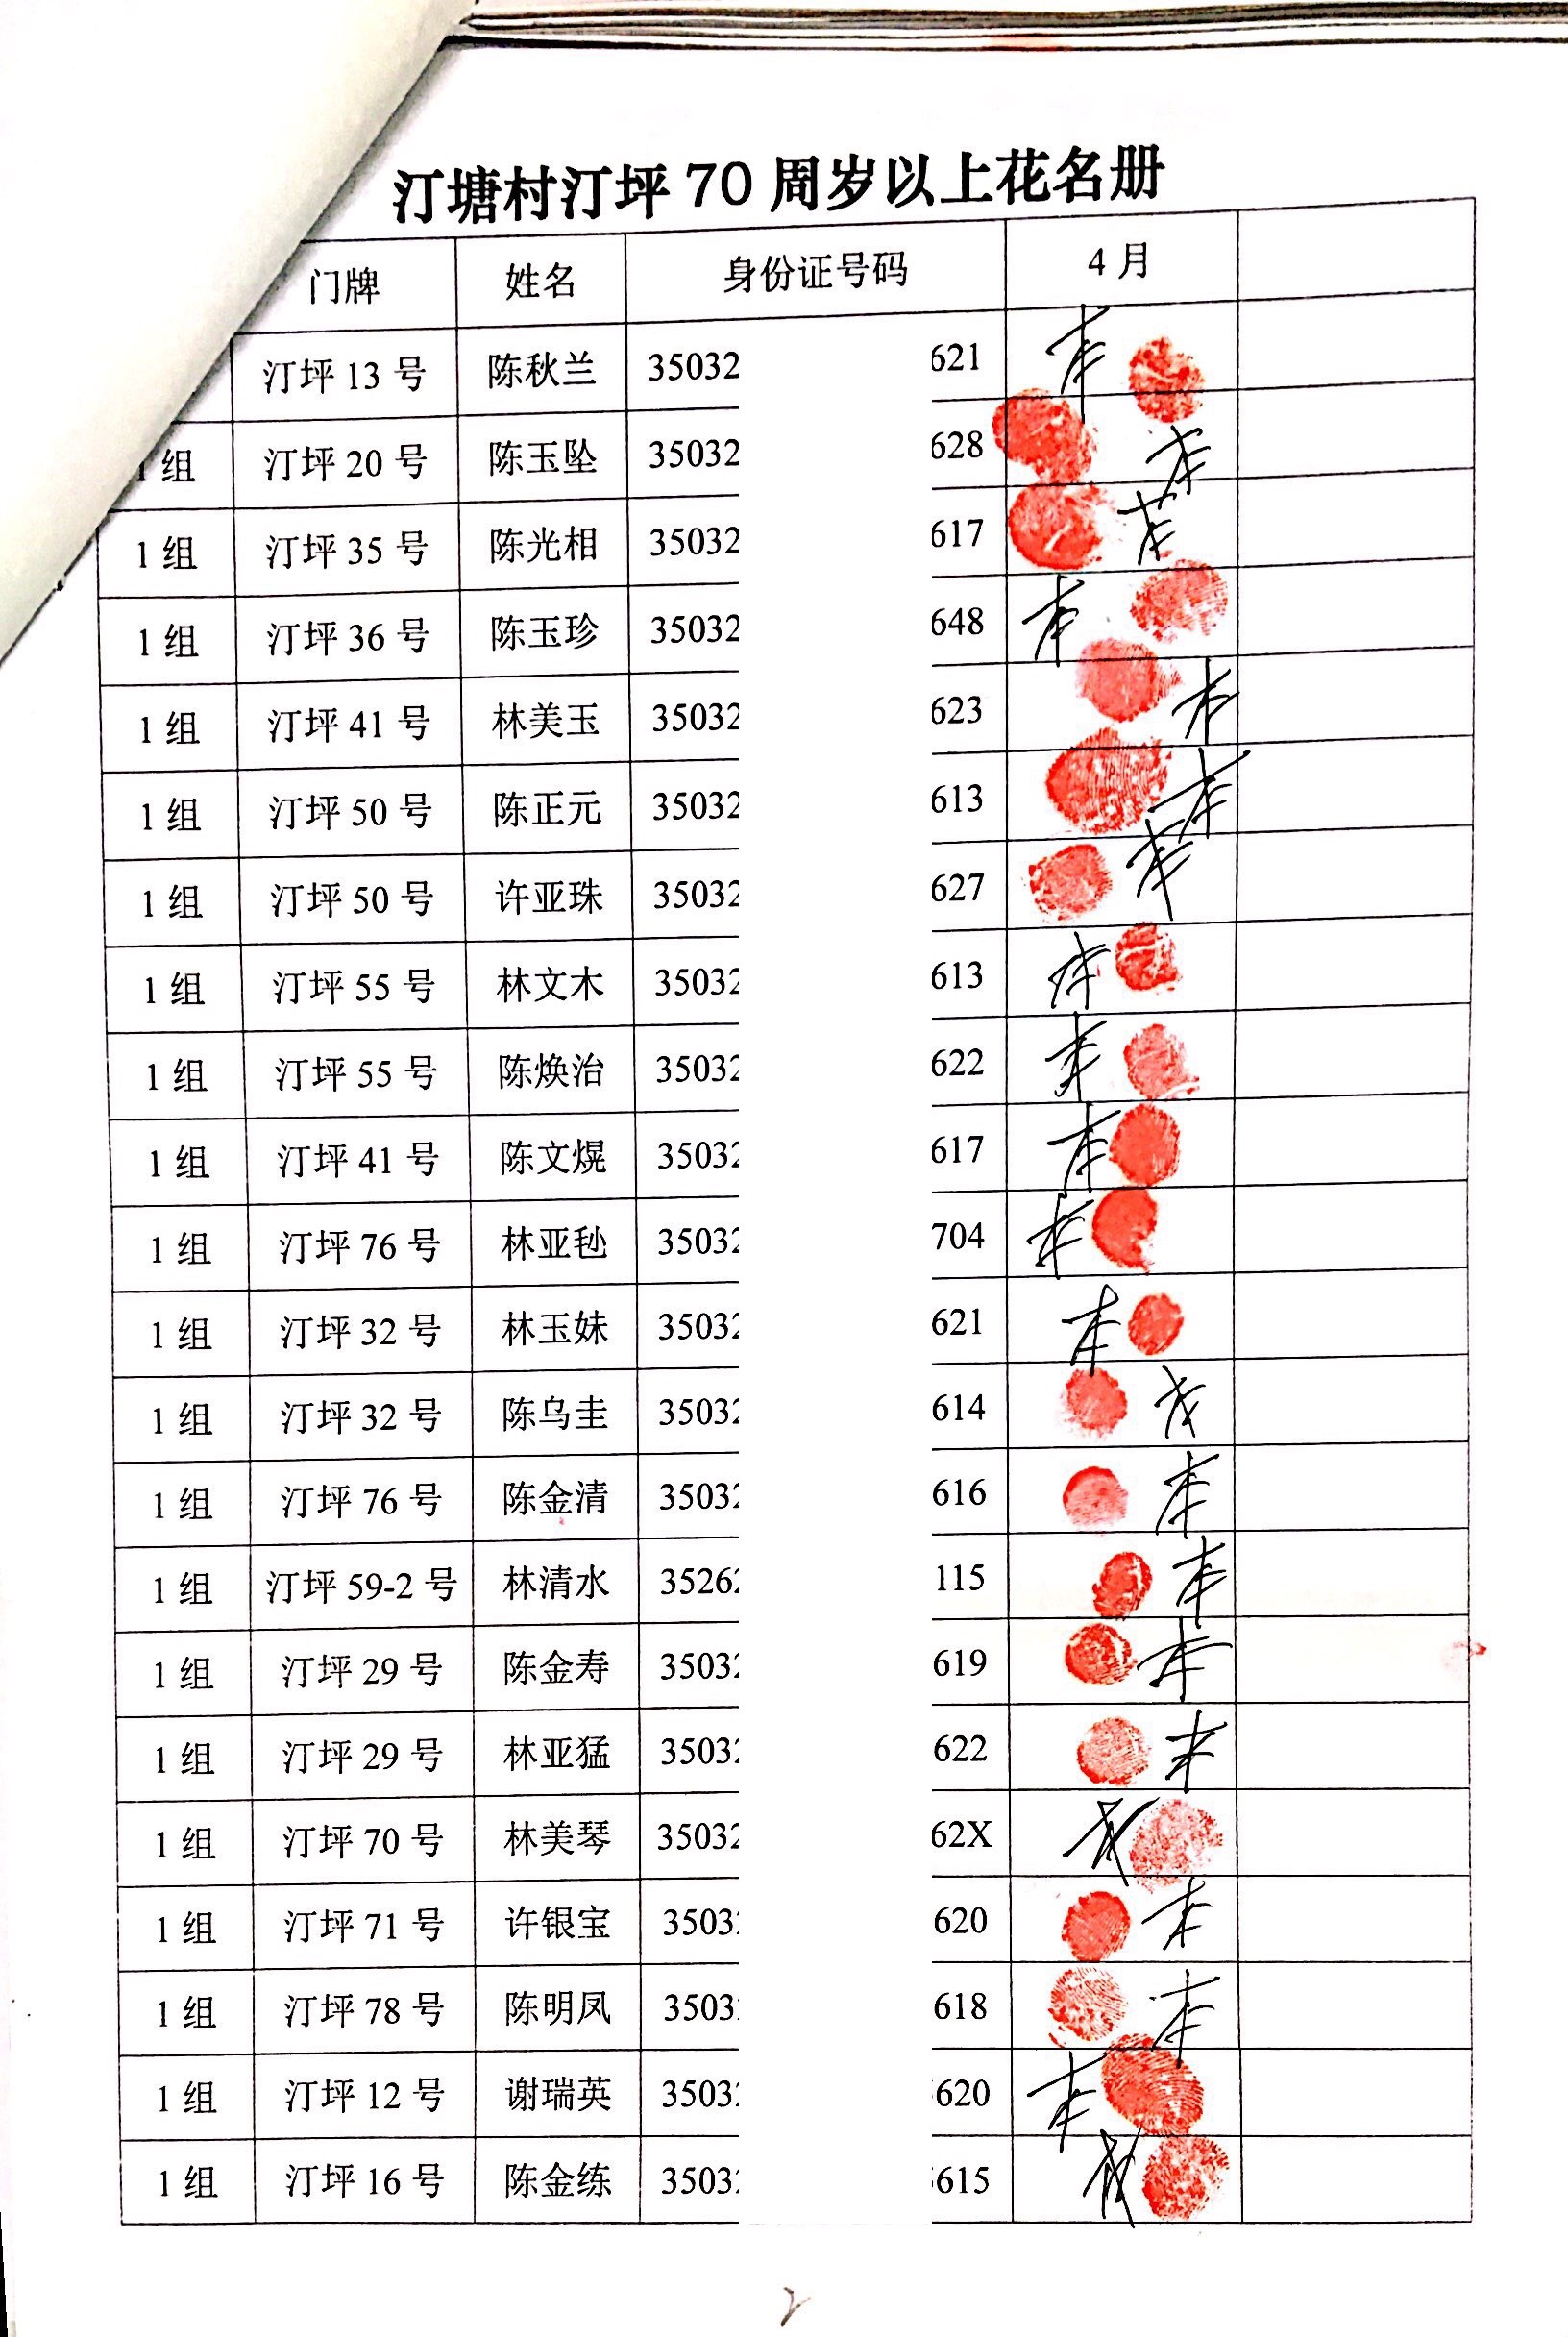 汀塘村汀坪 70 周岁以上花名册
门牌 姓名 身份证号码 4 月
汀坪 13 号 陈秋兰 35032 621
1 组 汀坪 20 号 陈玉坠 35032 628
1 组 汀坪 35 号 陈光相 35032 617
1 组 汀坪 36 号 陈玉珍 35032 648
1 组 汀坪 41 号 林美玉 35032 623
1 组 汀坪 50 号 陈正元 35032 613
1 组 汀坪 50 号 许亚珠 35032 627
1 组 汀坪 55 号 林文木 35032 613
1 组 汀坪 55 号 陈焕治 35032 622
1 组 汀坪 41 号 陈文熀 35032 617
1 组 汀坪 76 号 林亚 35032 704
1 组 汀坪 32 号 林玉妹 35032 621
1 组 汀坪 32 号 陈乌圭 35032 614
1 组 汀坪 76 号 陈金清 35032 616
1 组 汀坪 59-2 号 林清水 35262 115
1 组 汀坪 29 号 陈金寿 35032 619
1 组 汀坪 29 号 林亚猛 35032 622
1 组 汀坪 70 号 林美琴 35032 62X
1 组 汀坪 71 号 许银宝 3503 620
1 组 汀坪 78 号 陈明凤 3503 618
1 组 汀坪 12 号 谢瑞英 3503 620
1 组 汀坪 16 号 陈金练 3503 615
2